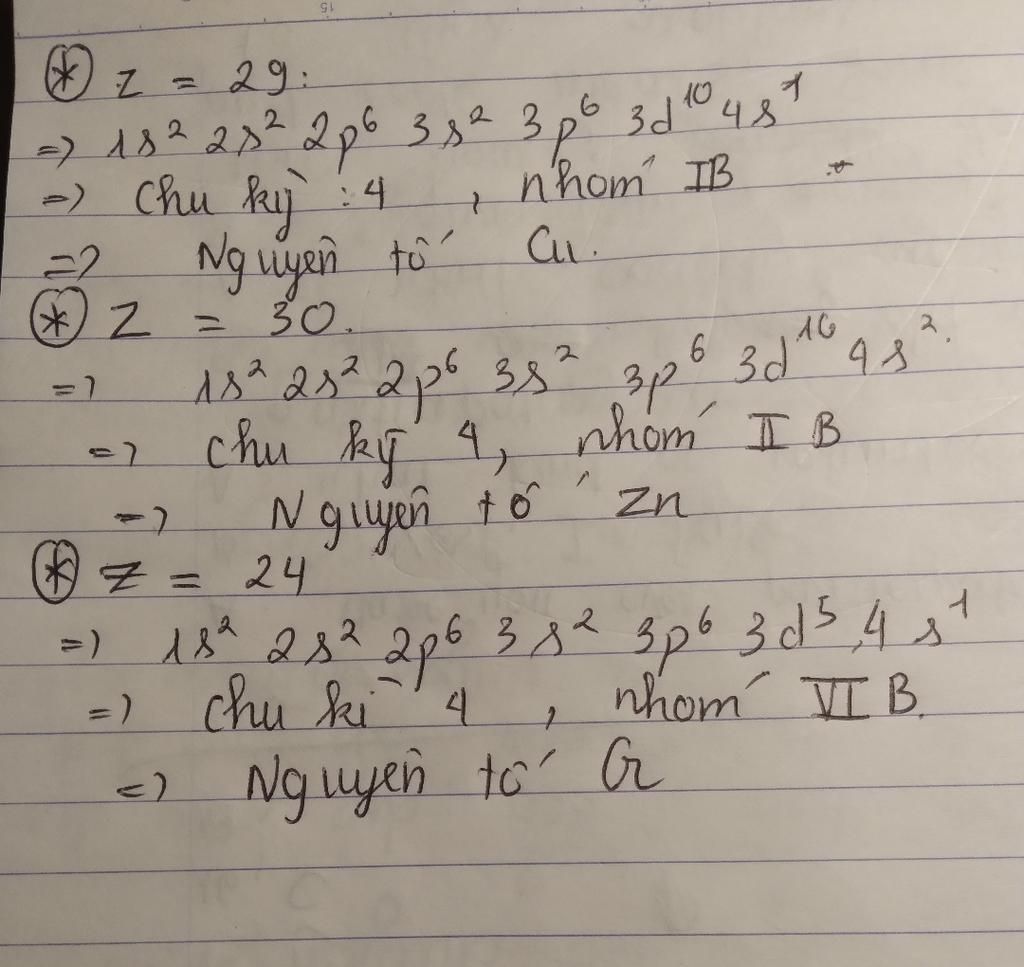 ⊛ Z = 29:
=> 1s² 2s² 2p⁶ 3s² 3p⁶ 3d¹⁰ 4s¹
=> Chu kỳ : 4 , nhóm IB
=> Nguyên tố Cu.
⊛ Z = 30.
=> 1s² 2s² 2p⁶ 3s² 3p⁶ 3d¹⁰ 4s².
=> chu kỳ 4, nhóm II B
=> Nguyên tố Zn
⊛ Z = 24
=> 1s² 2s² 2p⁶ 3s² 3p⁶ 3d⁵, 4s¹
=> chu kì 4 , nhóm VI B.
=> Nguyên tố Cr